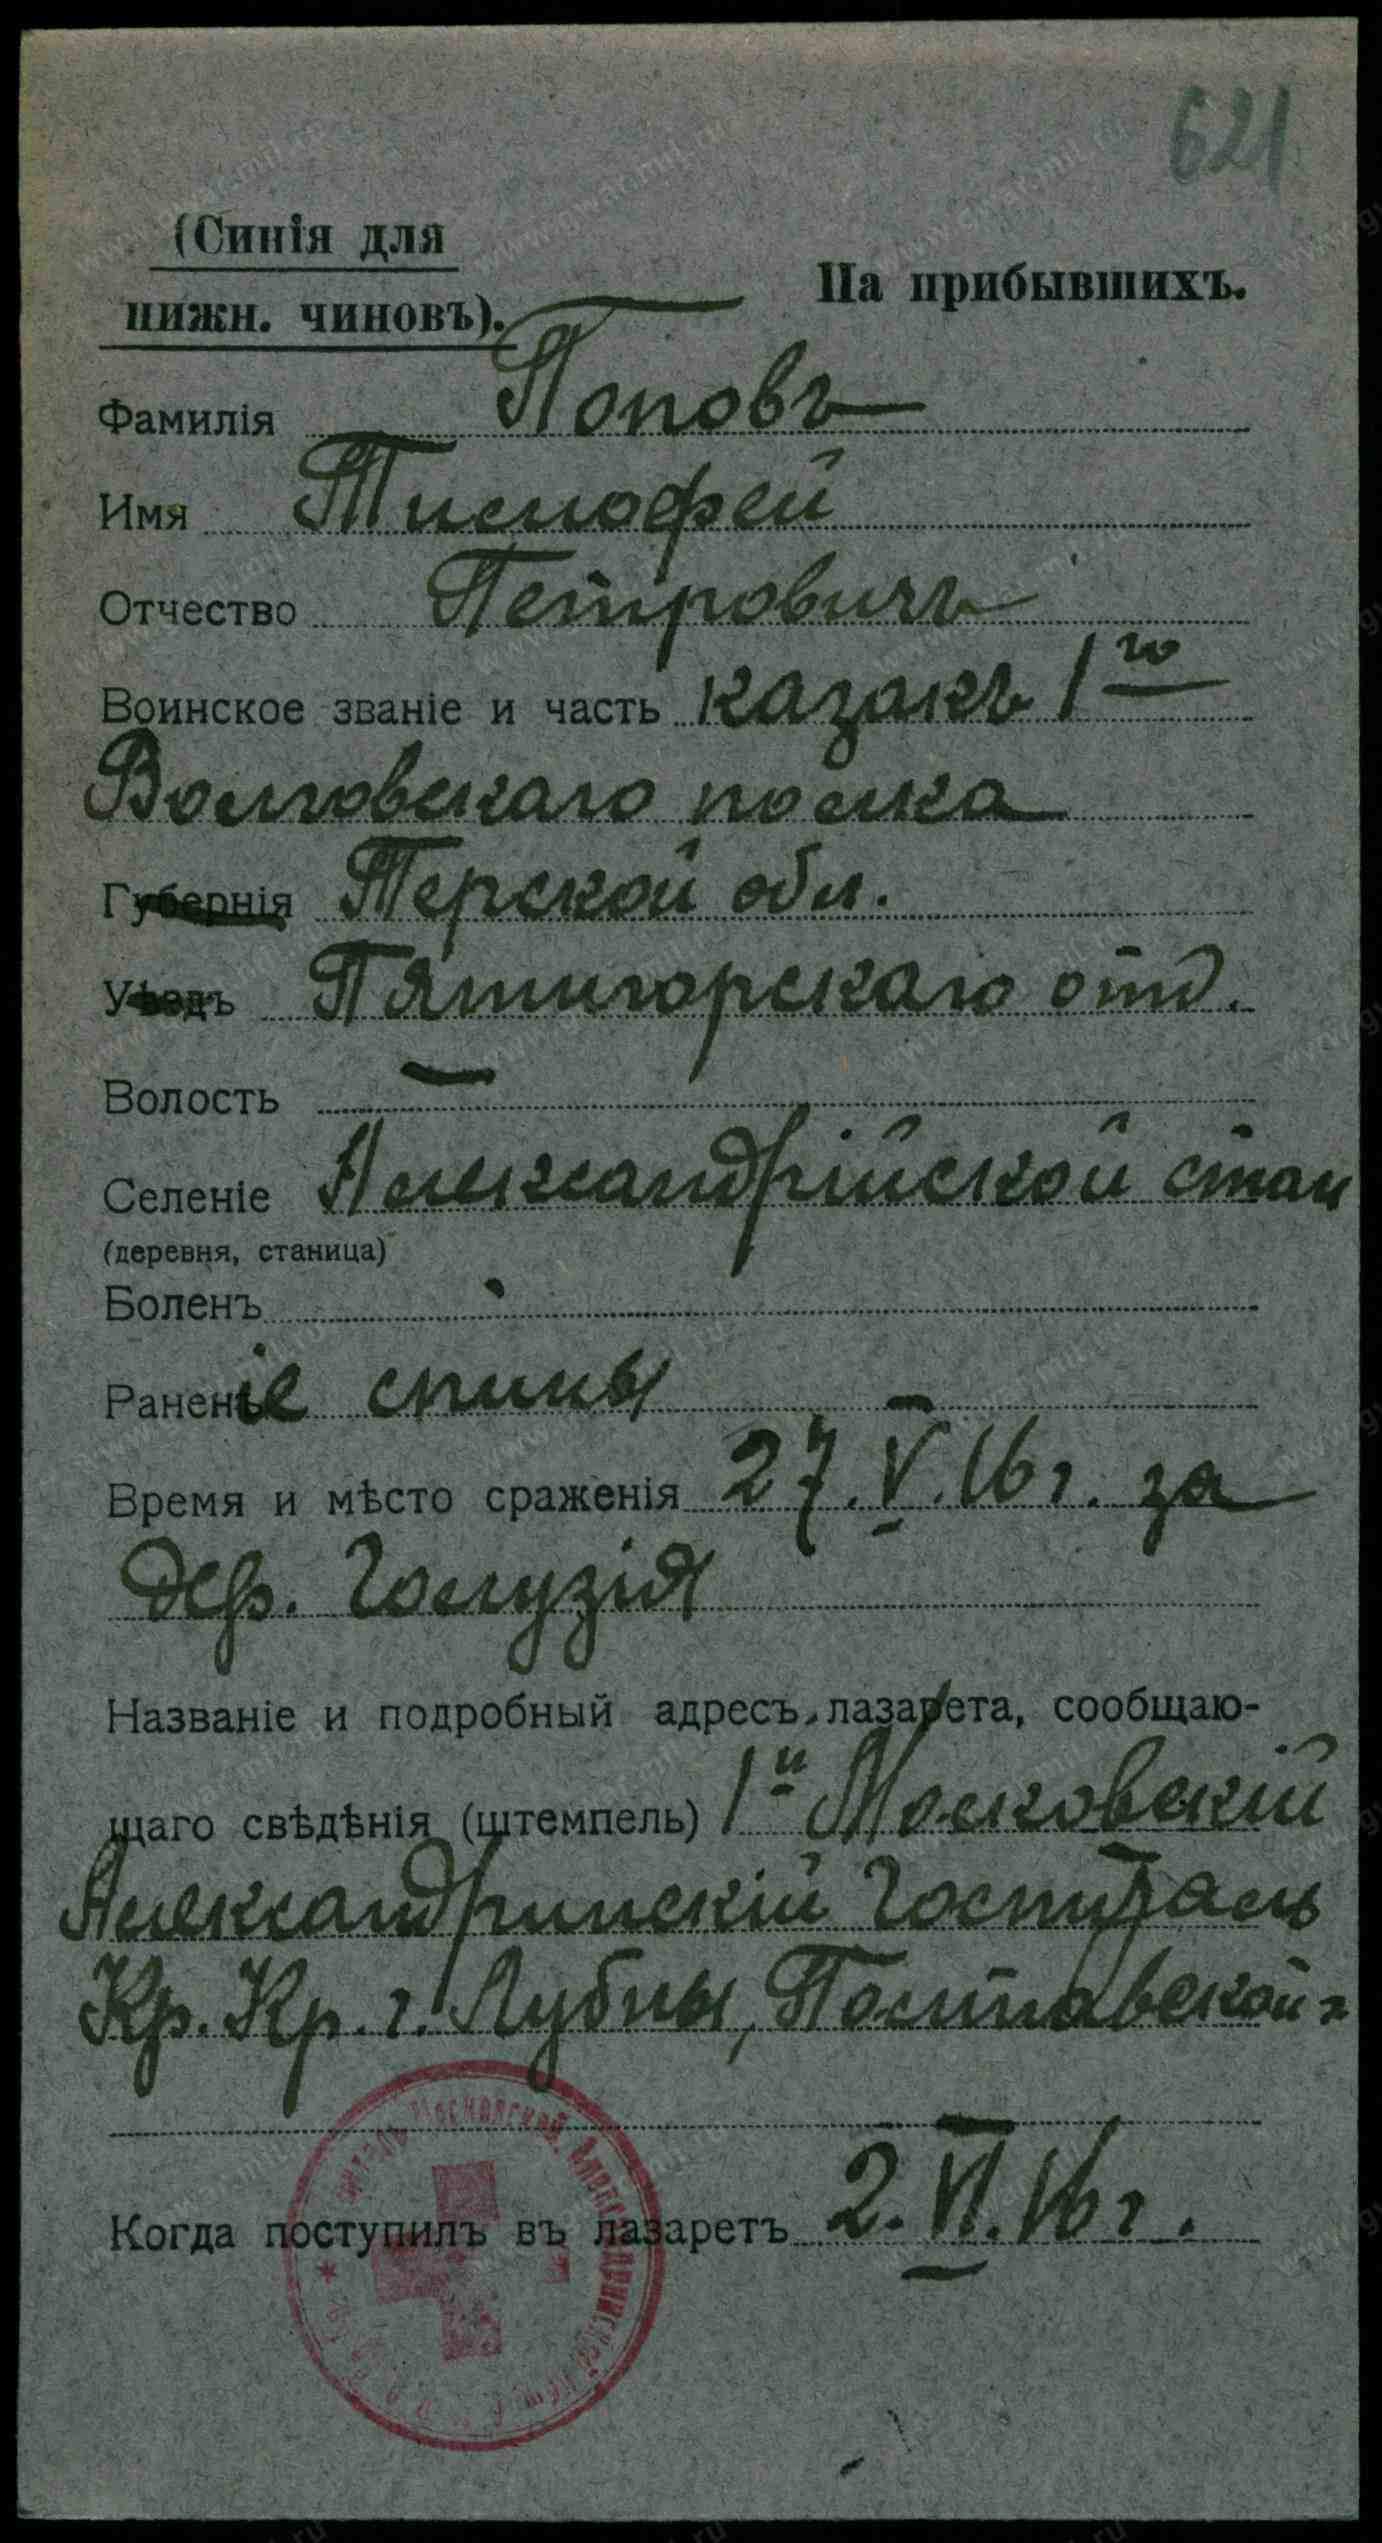 621
(Синія для
нижн. чиновъ).
На прибывшихъ.
Фамилія Поповъ
Имя Тимофей
Отчество Петровичъ
Воинское званіе и часть казакъ 1го
Волговскаго полка
Губернія Терской обл.
Уѣздъ Пятигорскаго отд.
Волость —
Селеніе Александрійской стан
(деревня, станица)
Боленъ
Раненіе спины
Время и мѣсто сраженія 27.V.16 г. за
дер. Голузія
Названіе и подробный адресъ лазарета, сообщаю-
щаго свѣдѣнія (штемпель) 1й Московскій
Александринскій Госпиталь
Кр. Кр. г. Лубны, Полтавской г
Когда поступилъ въ лазаретъ 2.VI.16 г.
www.gwar.mil.ru